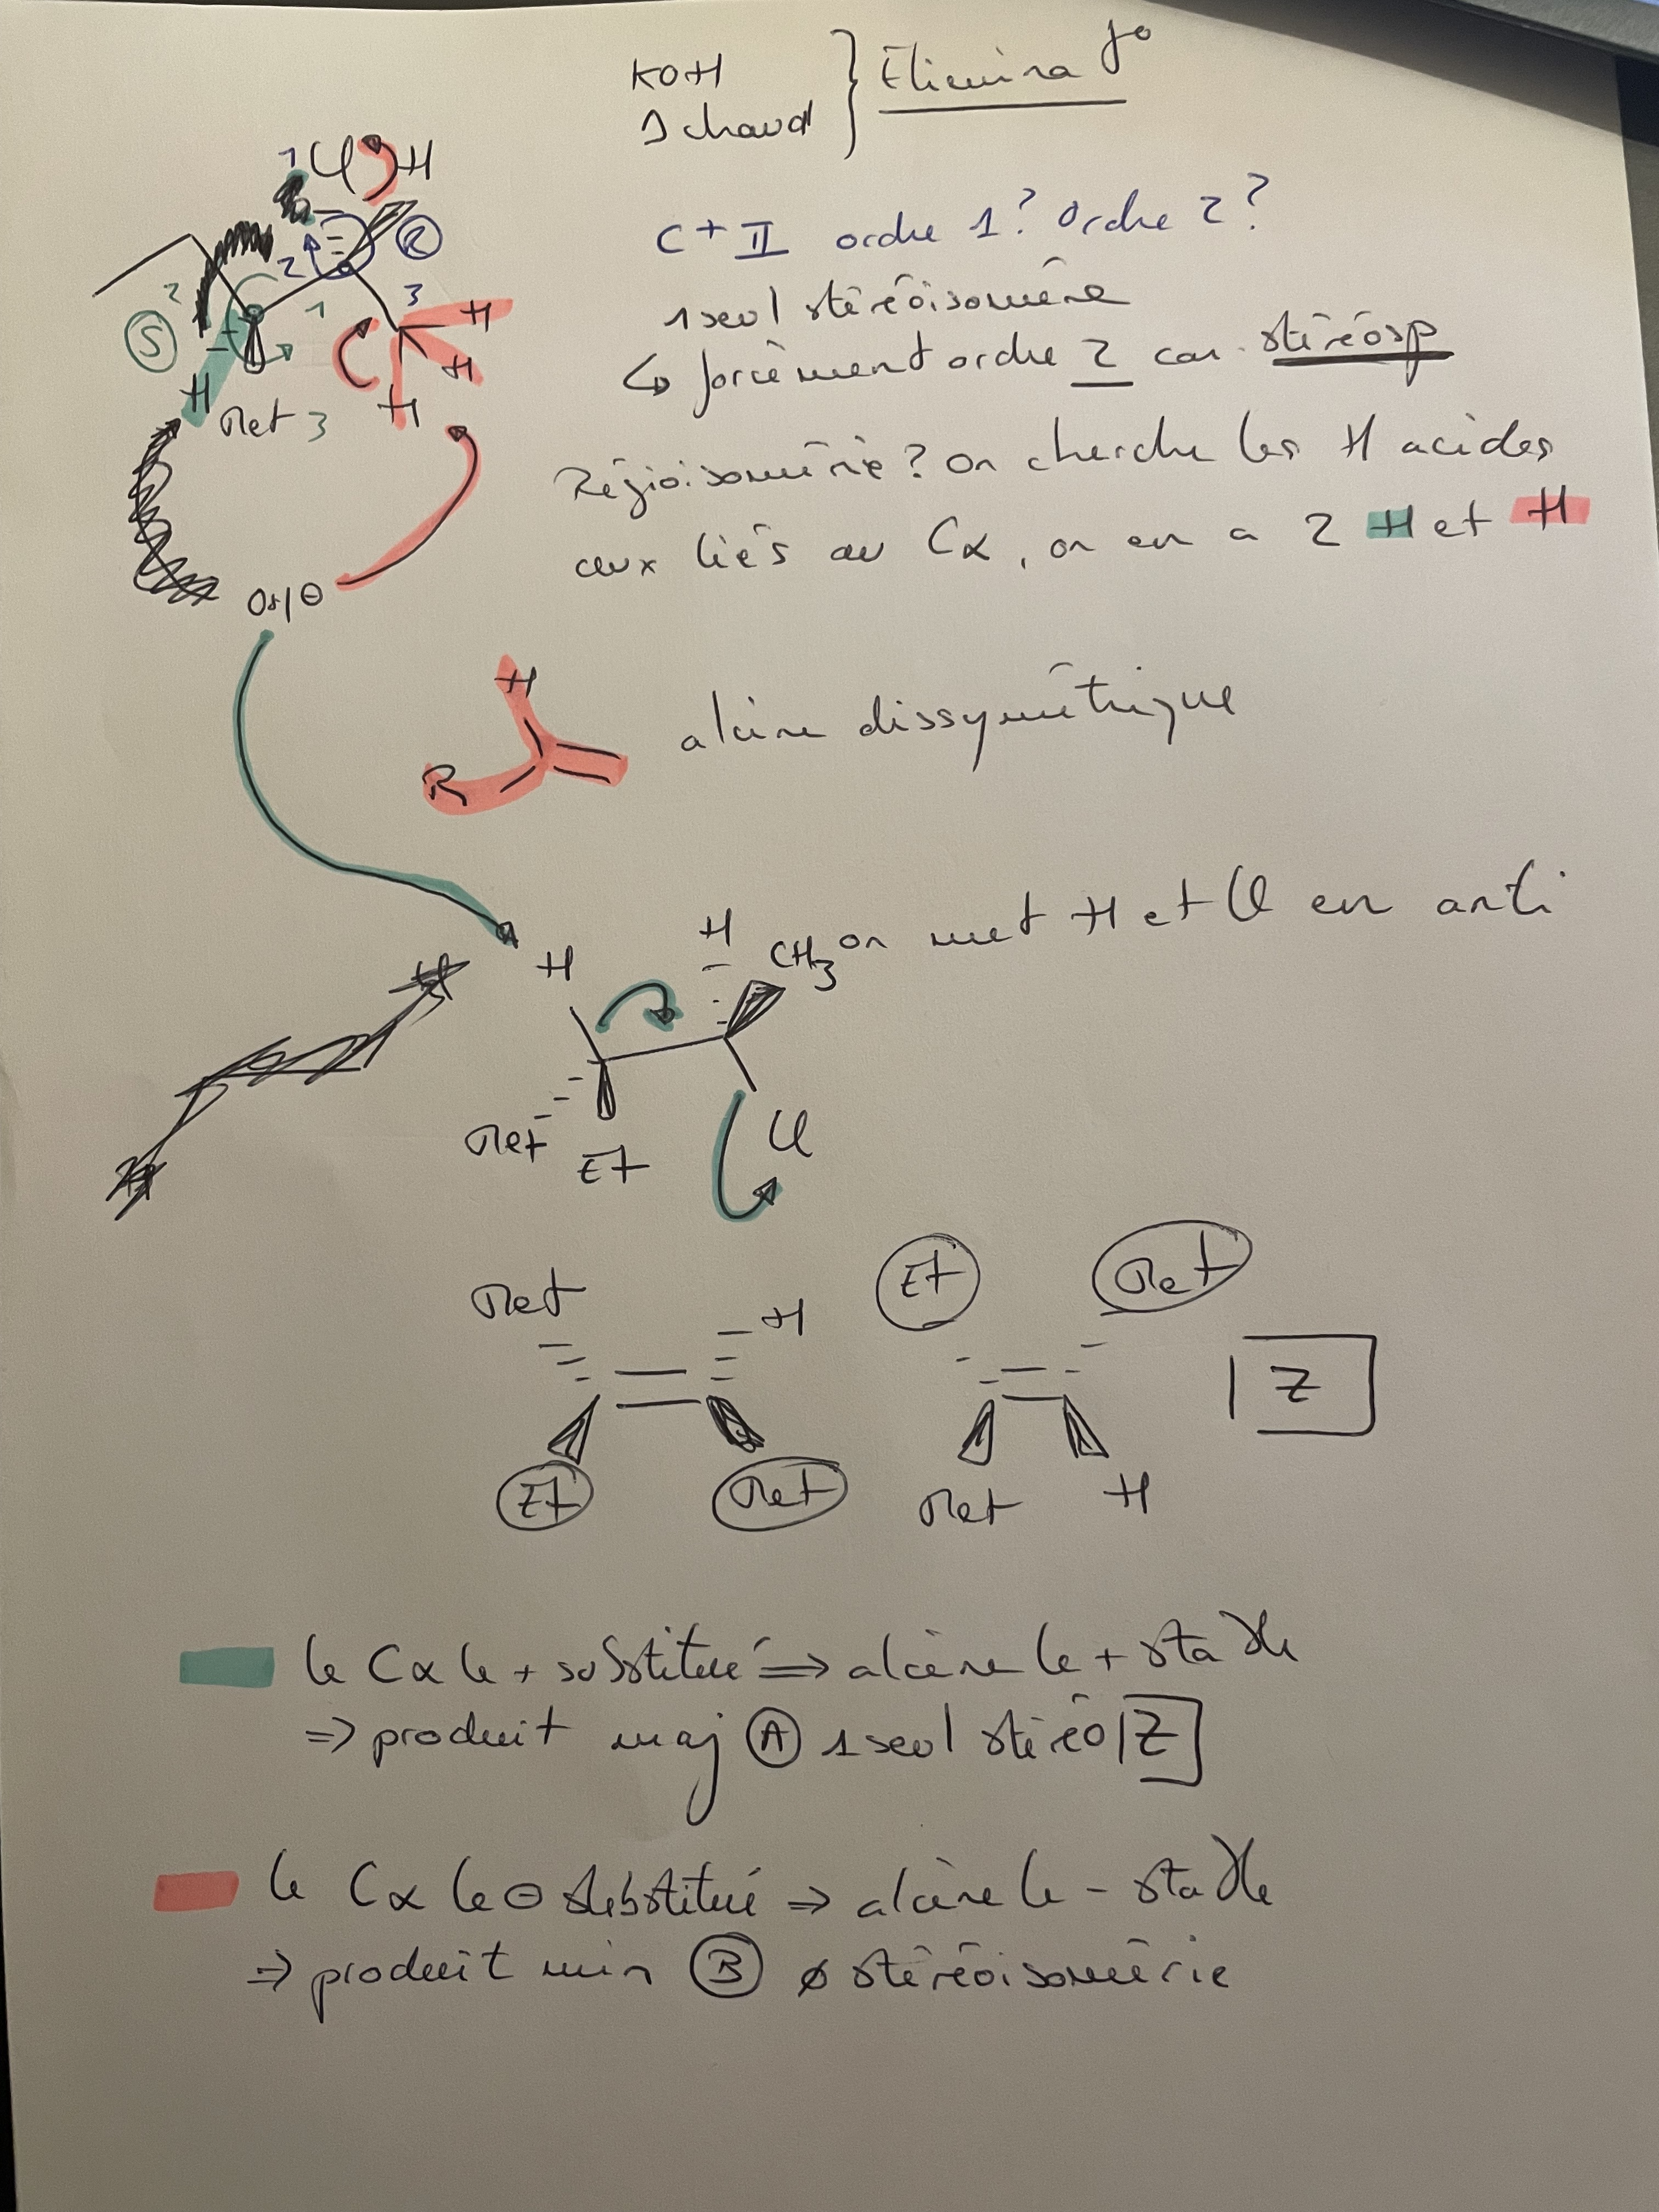 KOH
1 chaud } Elimina t°
Cl H
C+ II ordre 1? Ordre 2?
R
2 3
2 1 H
1 seul stéréoisomère
S
H
↳ forcément ordre 2 car stéréosp
H Met 3 H
Régioisomérie? On cherche les H acides
ceux liés au Cα, on en a 2 H et H
OH ⊖
H
R
alcène dissymétrique
H H CH3 on met H et Cl en anti
Met Et Cl
Met H Et Met
Z
Et Met Met H
le Cα le + substitué ⇒ alcène le + stable
⇒ produit maj A 1 seul stéréo Z
le Cα le ⊖ substitué ⇒ alcène le - stable
⇒ produit min B ø stéréoisomérie